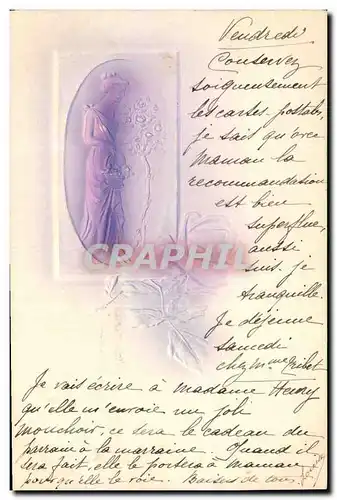 Vendredi
Conservez
soigneusement
les cartes-postales,
je sais qu'avec
Maman la
recommandation
est bien
superflue,
aussi
suis-je
tranquille.
Je déjeune
samedi
chez Mme
CPARPHIL
Je vais écrire à madame Henry
qu'elle m'envoie un joli
mouchoir, ce sera le cadeau du
parrain à la marraine. Quand il
sera fait, elle le portera à Maman
pour qu'elle le voie. Baisers de tous.